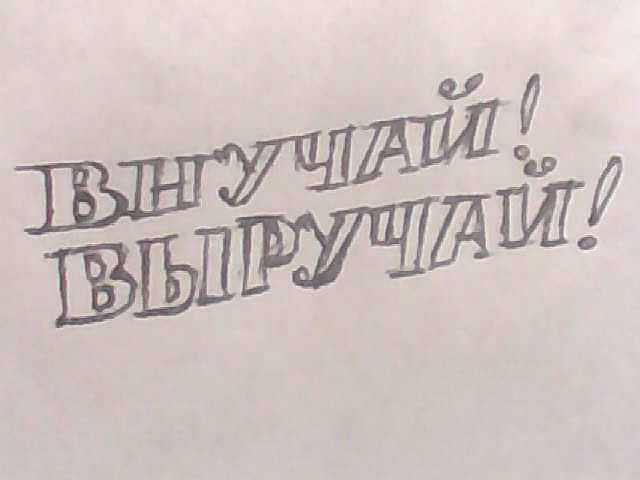 ВНУЧАЙ!
ВЫРУЧАЙ!